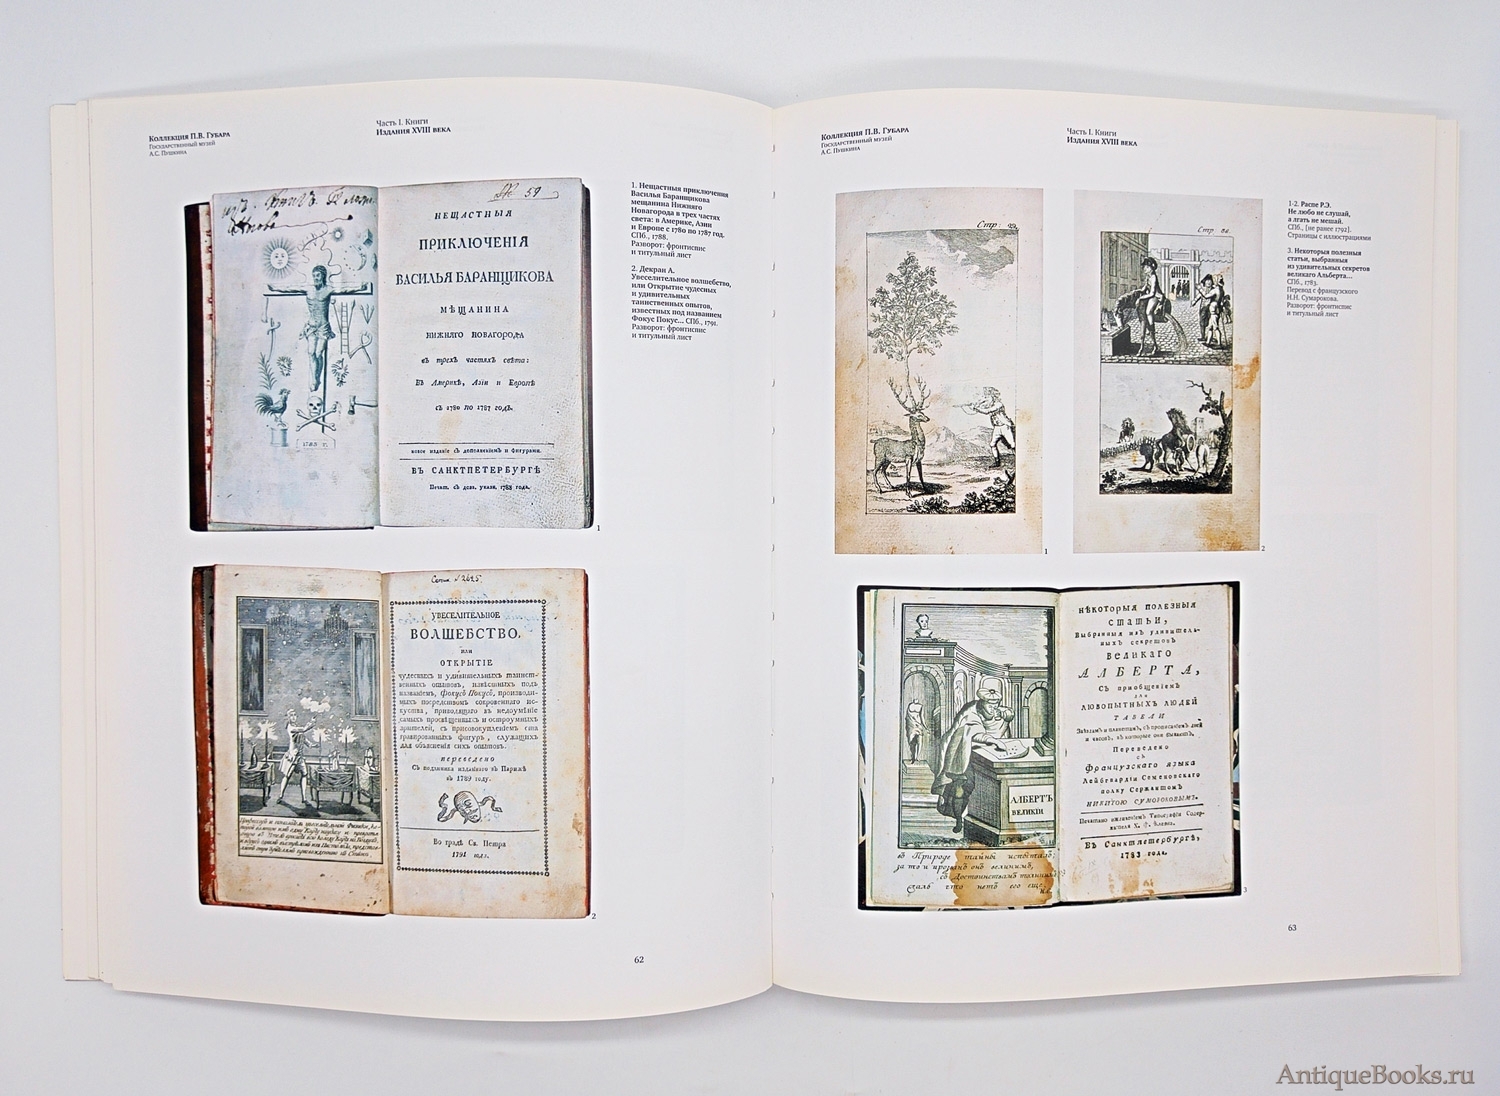 Коллекция П.В. Губара
Государственный музей
А.С. Пушкина
Часть I. Книги
Издания XVIII века
№ 59
НЕЩАСТНЫЯ
ПРИКЛЮЧЕНІЯ
ВАСИЛЬЯ БАРАНЩИКОВА
МѢЩАНИНА
НИЖНЯГО НОВАГОРОДА
въ трехъ частяхъ свѣта:
Въ Америкѣ, Азіи и Европѣ
съ 1780 по 1787 годъ.
новое изданіе съ дополненіемъ и фигурами.
ВЪ САНКТПЕТЕРБУРГѢ
Печат. съ дозв. указн. 1788 года.
1
1. Нещастныя приключения
Василья Баранщикова
мещанина Нижняго
Новагорода в трех частях
света: в Америке, Азии
и Европе с 1780 по 1787 год.
СПб., 1788.
Разворот: фронтиспис
и титульный лист
2. Декран А.
Увеселительное волшебство,
или Открытие чудесных
и удивительных
таинственных опытов,
известных под названием
Фокус Покус... СПб., 1791.
Разворот: фронтиспис
и титульный лист
УВЕСЕЛИТЕЛЬНОЕ
ВОЛШЕБСТВО,
ИЛИ
ОТКРЫТІЕ
чудесныхъ и удивительныхъ таинст-
венныхъ опытовъ, извѣстныхъ подъ
названіемъ, Фокусъ Покусъ, производи-
мыхъ посредствомъ сокровеннаго ис-
куства, приводящаго въ недоумѣніе
самыхъ просвѣщенныхъ и остроумныхъ
зрителей, съ присовокупленіемъ
гравированныхъ фигуръ, служащихъ
для объясненія сихъ опытовъ.
переведено
Съ подлинника изданнаго въ Парижѣ
въ 1789 году.
Во градѣ Св. Петра
1791 года.
2
62
Коллекция П.В. Губара
Государственный музей
А.С. Пушкина
Часть I. Книги
Издания XVIII века
Стр:
1
Стр:
2
1-2. Распе Р.Э.
Не любо не слушай,
а лгать не мешай.
СПб., [не ранее 1792].
Страницы с иллюстрациями
3. Некоторыя полезныя
статьи, выбранныя
из удивительных секретов
великаго Альберта...
СПб., 1783.
Перевод с французского
Н.Н. Сумарокова.
Разворот: фронтиспис
и титульный лист
АЛБЕРТЪ
ВЕЛИКІИ
въ Природе тайной испыталъ,
за то и прозванъ онъ великимъ,
съ Достоинствамъ
сталь что нетъ его еще.
НѢКОТОРЫЯ ПОЛЕЗНЫЯ
СТАТЬИ,
Выбранныя изъ удивитель-
ныхъ секретовъ
ВЕЛИКАГО
АЛБЕРТА,
Съ приобщеніемъ
для
ЛЮБОПЫТНЫХЪ ЛЮДЕЙ
ТАБЕЛИ
Звѣздамъ и планетамъ, съ прописаніемъ дней
и часовъ, въ которые они бываютъ,
Переведено
съ
Французскаго языка
Лейбгвардіи Семеновскаго
полку Сержантомъ
НИКИТОЮ СУМОРОКОВЫМЪ.
Печатано иждивеніемъ Типографіи Содер-
жателя Х. Ф. Клеена.
Въ Санктпетербургѣ,
1783 года.
3
63
AntiqueBooks.ru